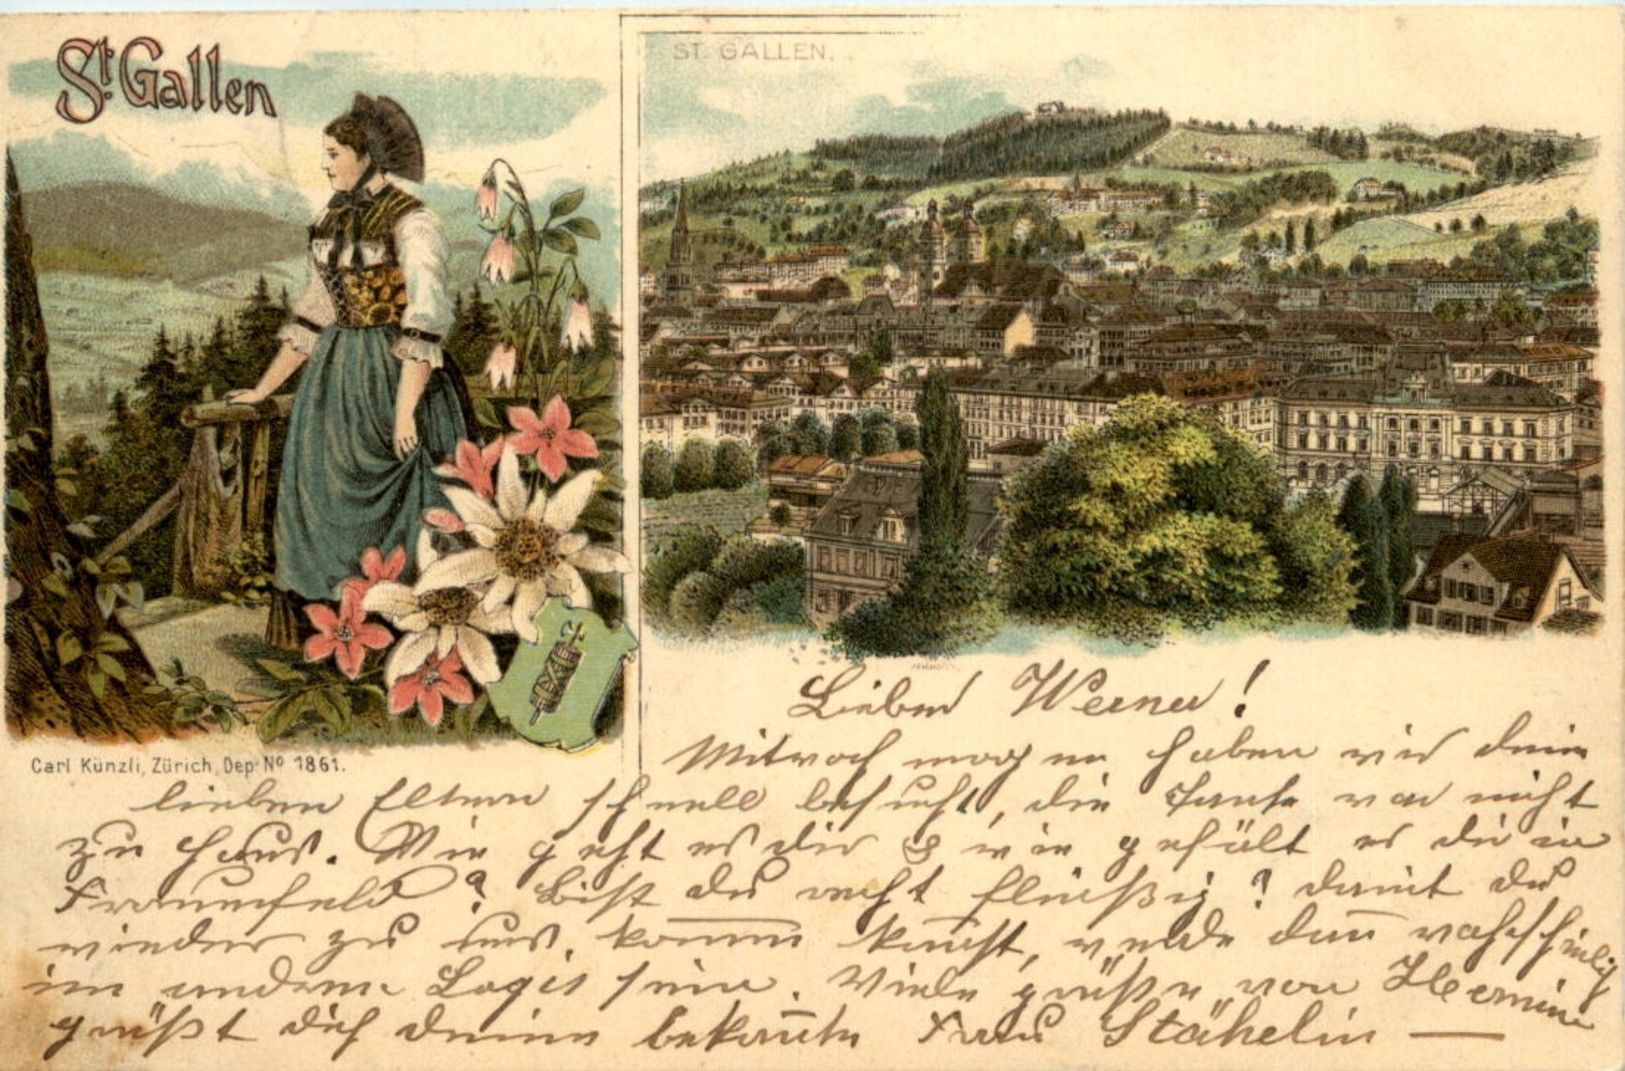 St. Gallen
ST. GALLEN.
Carl Künzli, Zürich, Dep. No 1861.
Lieber Werner!
Mittwoch morgen haben wir deine
lieben Eltern schnell besucht, die Tante war nicht
zu Haus. Wie geht es dir & wie gefält es dir in
Frauenfeld? Bist du recht fleißig? damit du
wieder zu uns. komen kanst, werde dan wahrscheinlig
im anderen Logis sein. Viele grüße von Hermine
grüßt dich deine bekannte Frau Stähelin —